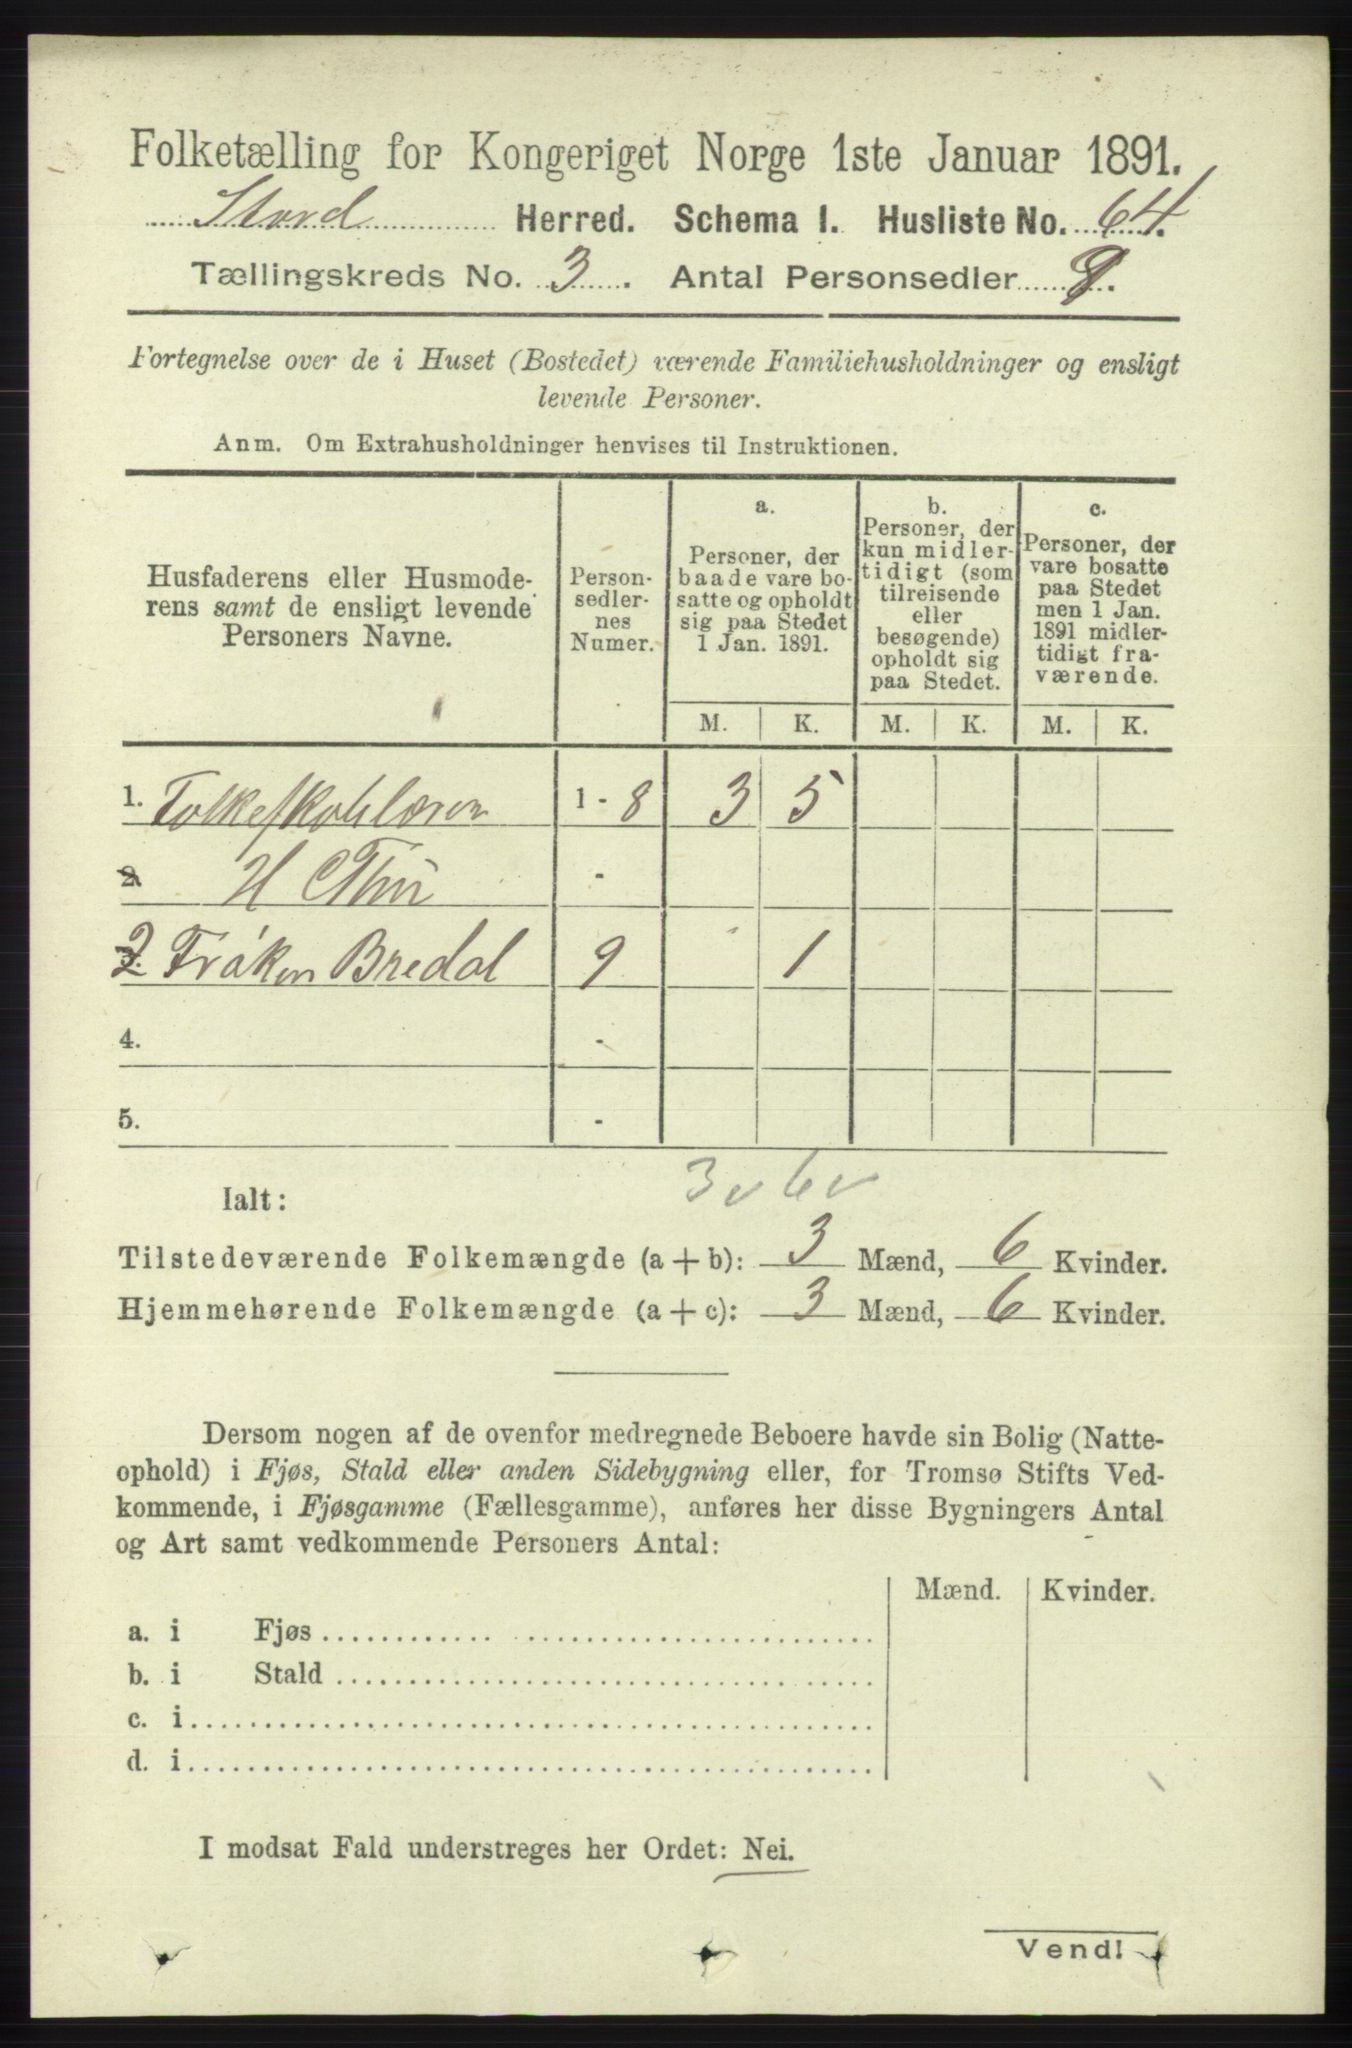 Folketælling for Kongeriget Norge 1ste Januar 1891.
Stord Herred. Schema I. Husliste No. 64.
Tællingskreds No. 3. Antal Personsedler 9.
Fortegnelse over de i Huset (Bostedet) værende Familiehusholdninger og ensligt
levende Personer.
Anm. Om Extrahusholdninger henvises til Instruktionen.
Husfaderens eller Husmode-
rens samt de ensligt levende
Personers Navne.
Person-
sedler-
nes
Numer.
a.
Personer, der
baade vare bo-
satte og opholdt
sig paa Stedet
1 Jan. 1891.
b.
Personer, der
kun midler-
tidigt (som
tilreisende
eller
besøgende)
opholdt sig
paa Stedet.
c.
Personer, der
vare bosatte
paa Stedet
men 1 Jan.
1891 midler-
tidigt fra-
værende.
M. K. M. K. M. K.
1. 1 - 8 3 5
2. H -
2 Frøken Bredal 9 1
4. -
5. -
3 v 6 v
Ialt:
Tilstedeværende Folkemængde (a + b): 3 Mænd, 6 Kvinder.
Hjemmehørende Folkemængde (a + c): 3 Mænd, 6 Kvinder.
Dersom nogen af de ovenfor medregnede Beboere havde sin Bolig (Natte-
ophold) i Fjøs, Stald eller anden Sidebygning eller, for Tromsø Stifts Ved-
kommende, i Fjøsgamme (Fællesgamme), anføres her disse Bygningers Antal
og Art samt vedkommende Personers Antal:
Mænd. Kvinder.
a. i Fjøs
b. i Stald
c. i
d. i
I modsat Fald understreges her Ordet: Nei.
Vend!